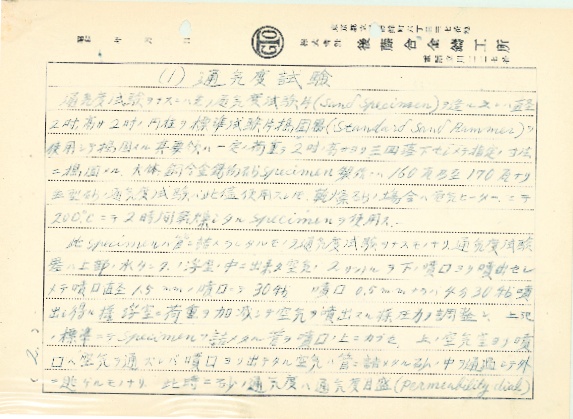 後藤合金鑄工所
昭和 年 月 日
(1) 通気度試験
通気度ノ試験ヲナスニハ先ヅ通気度試験片(Sand Specimen)ヲ造ル 之ハ直径
2吋高サ2吋ノ円柱ヲ標準試験片搗固器(Standard Sand Rammer)ヲ
使用シテ搗固メル 一定ノ荷重ヲ2吋ノ高サヨリ三回落下セシメテ指定ノ寸法
ニ搗固メル 大体銅合金鋳物砂 Specimen 製造ニハ160瓦乃至170瓦ナリ
生型砂ノ通気度試験ハ此儘使用スレド 乾燥砂ノ場合ハ電気ヒーターニテ
200℃ニテ2時間乾燥シタル Specimen ヲ使用ス
此 Specimen ハ管ニ詰メラレタルモノヲ通気度試験ヲナスモノナリ 通気度試験
器ハ上部ノ水タンクノ浮室ノ中ニ出来タ空気 ヲ下ノ噴口ヨリ噴出セシ
メテ噴口直径1.5mmノ噴口デ30秒 噴口0.5mmノ 4分30秒噴
出シ得ル様浮室ノ荷重ヲ加減シテ空気ヲ噴出スル様圧力ヲ調整シ 上記
ノ標準ニテ Specimen ヲ詰メタル管ヲ噴口ノ上ニカブセ 上ノ空気室ヨリ噴
口ヘ空気ヲ通ズレバ噴口ヨリ出デタル空気ハ管ニ詰メタル砂ノ中ヲ通過シテ外
ニ逃ゲルモノナリ 此時ニ砂ノ通気度ハ通気度目盛(Permeability dial)
(2)